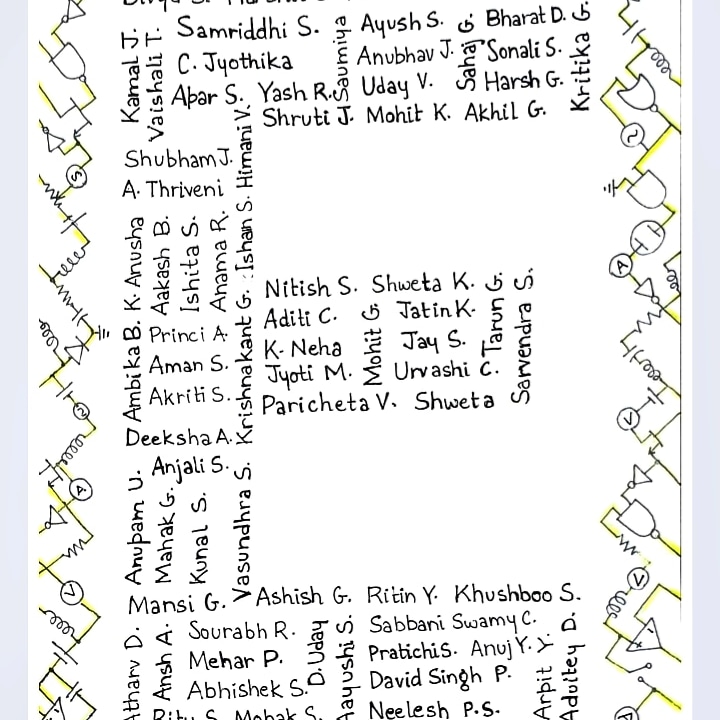 Samriddhi S.
Ayush S.
Bharat D.
Kamal J.
Vaishali T.
C. Jyothika
Saumiya
Anubhav J.
Sahaj G.
Sonali S.
Kritika G.
Apar S.
Yash R.
Uday V.
Harsh G.
Shruti J.
Mohit K.
Akhil G.
Shubham J.
Himani V.
A. Thriveni
Ishan S.
K. Anusha
Aakash B.
Ishita S.
Anama R.
Nitish S.
Shweta K.
Tarun G.
Sarvendra S.
Aditi C.
Mohit G.
Jatin K.
Krishnakant G.
Ambika B.
Princi A.
K. Neha
Jay S.
Aman S.
Jyoti M.
Urvashi C.
Akriti S.
Paricheta V.
Shweta
Deeksha A.
Anjali S.
Anupam U.
Mahak G.
Kunal S.
Vasundhra S.
Mansi G.
Ashish G.
Ritin Y.
Khushboo S.
Atharv D.
Ansh A.
Sourabh R.
D. Uday
Aayushi S.
Sabbani Swamy C.
Mehar P.
Pratichi S.
Anuj Y.
Arpit Y.
Aduitey D.
Abhishek S.
David Singh P.
Neelesh P.S.
S
A
V
A
V
V